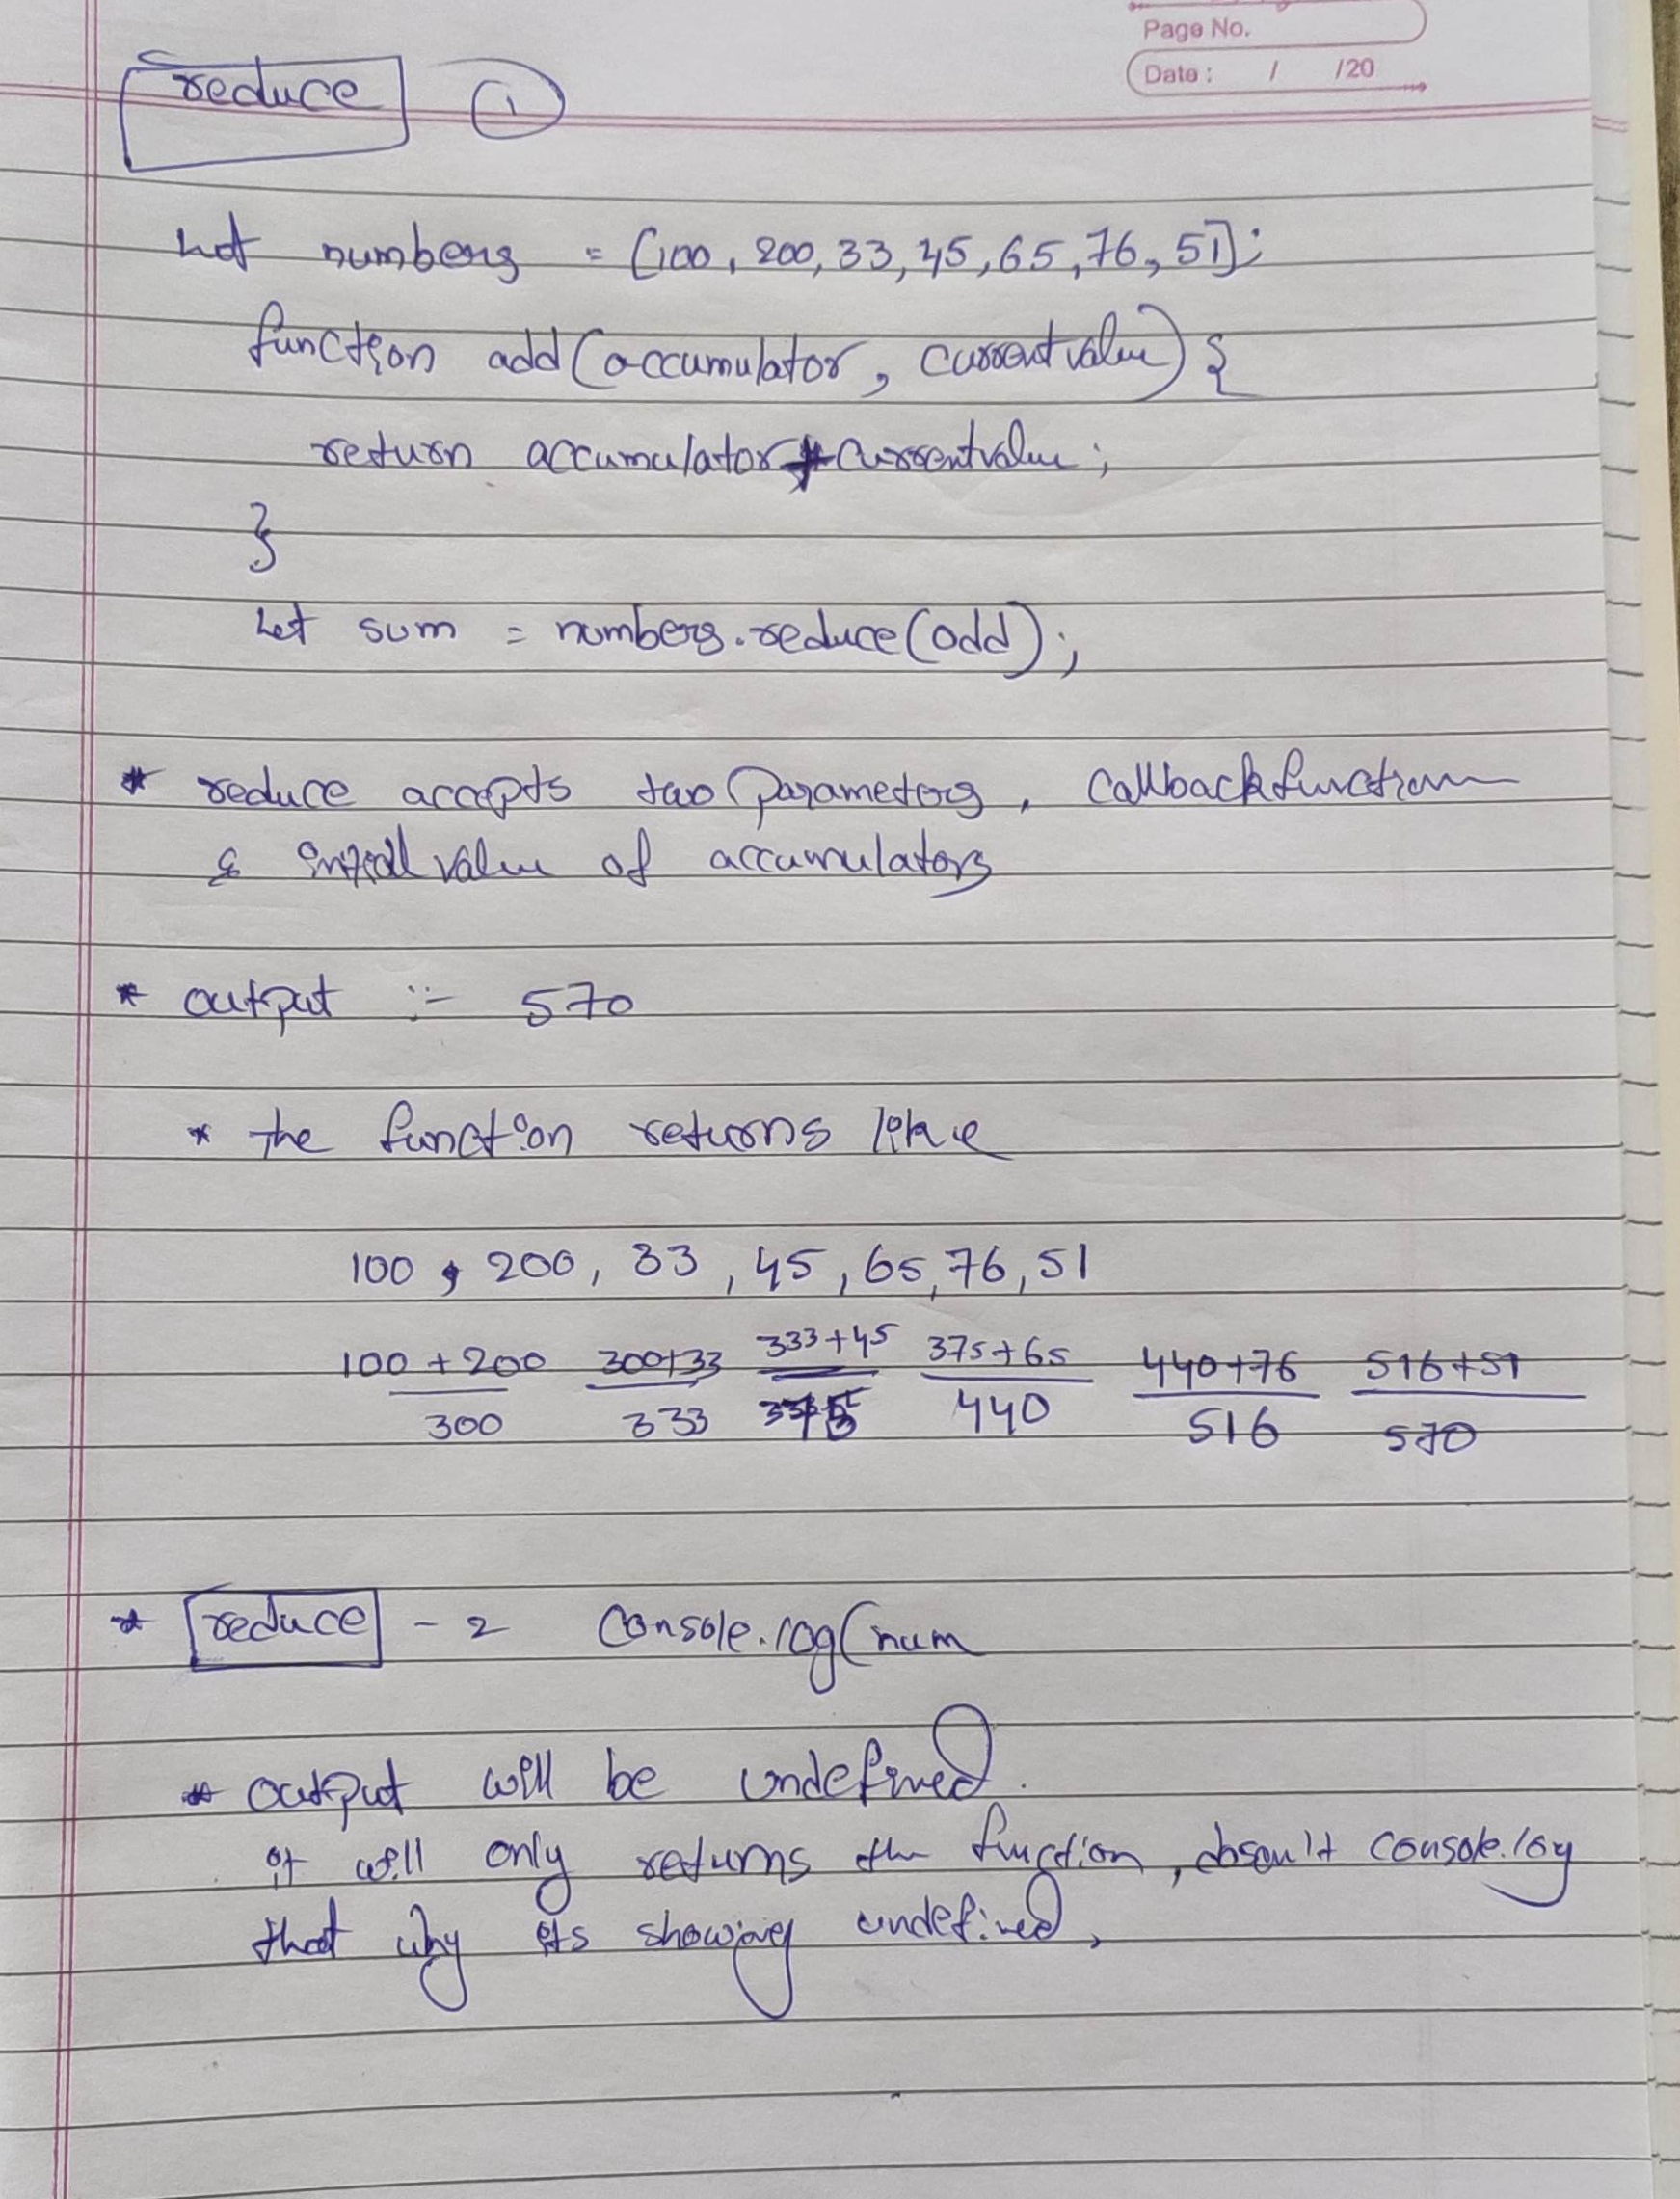 Page No.
Date : / /20
reduce 1
Let numbers = [100, 200, 33, 45, 65, 76, 51];
function add(accumulator, currentvalue) {
return accumulator + currentvalue;
}
Let sum = numbers.reduce(add);
* reduce accepts two parameters, callback function
& initial value of accumulators
* output :- 570
* The function returns like
100, 200, 33, 45, 65, 76, 51
100 + 200 300+33 333+45 375+65 440+76 516+51
300 333 440 516 570
* reduce - 2 Console.log(num
* output will be undefined.
it will only returns the function, console.log
that why its showing undefined,